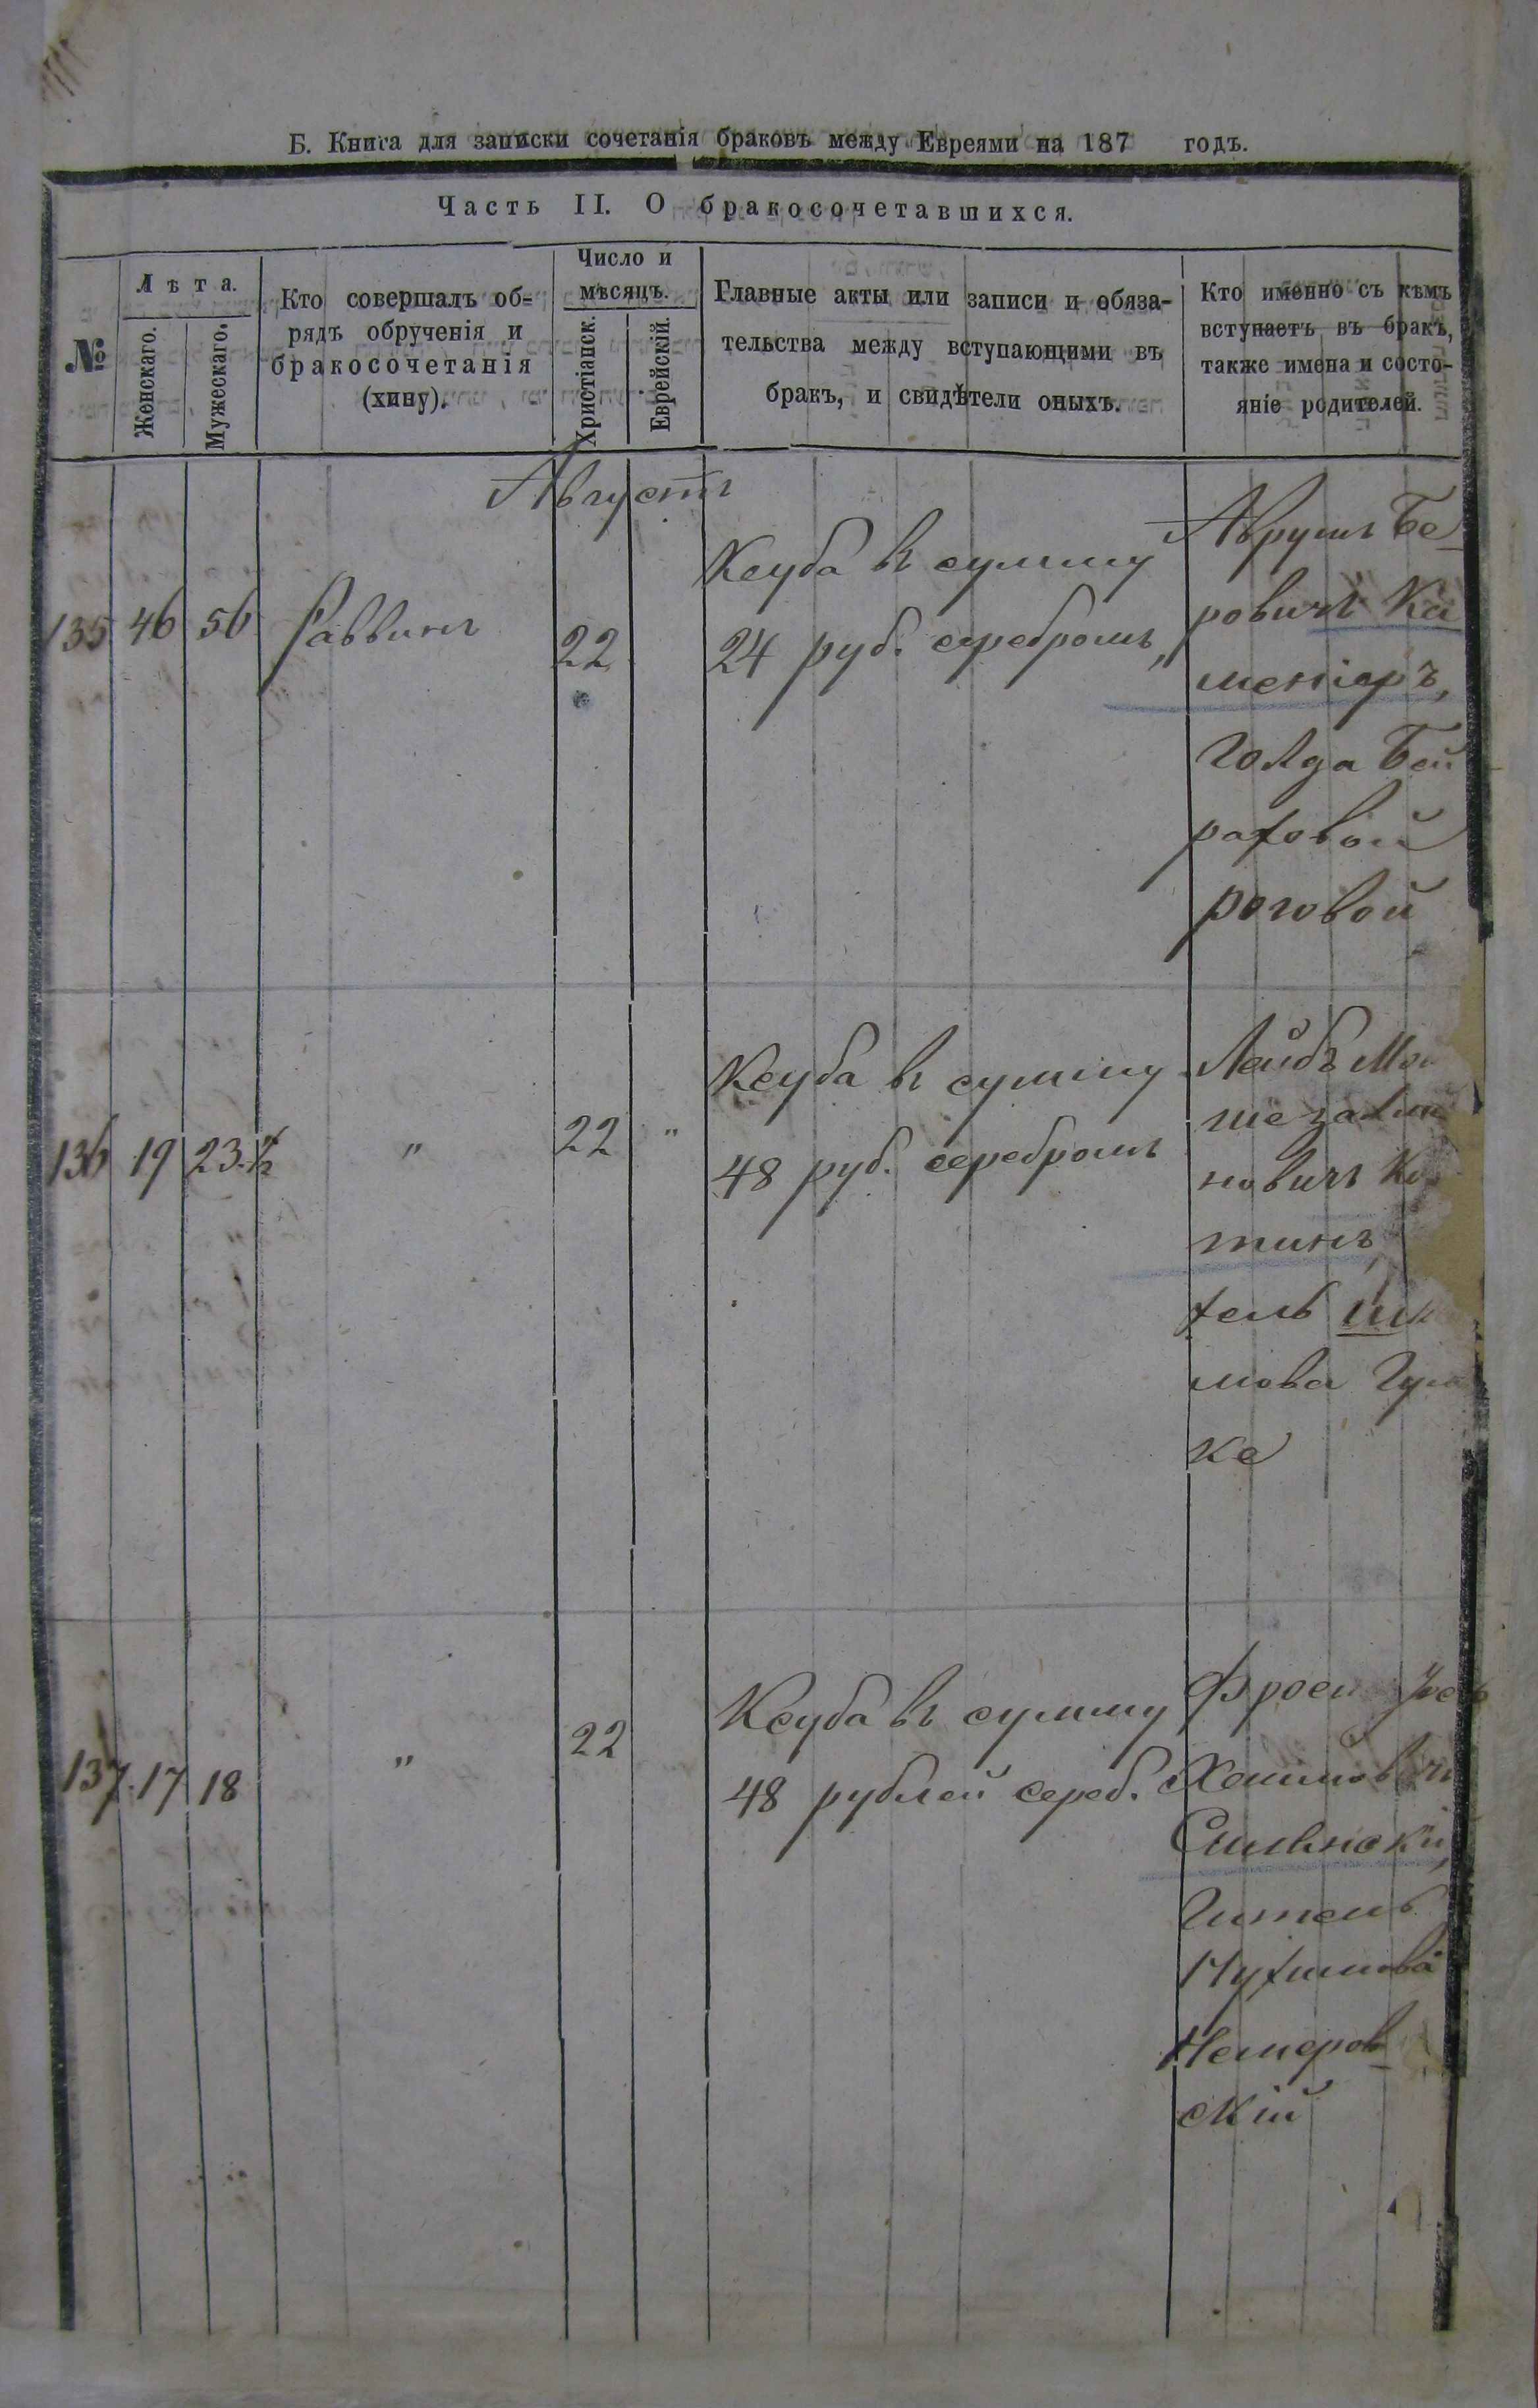 Б. Книга для записки сочетанія браковъ между Евреями на 187 годъ.
Часть II. О бракосочетавшихся.
№
Лѣта.
Женскаго.
Мужескаго.
Кто совершалъ об=
рядъ обрученія и
бракосочетанія
(хипу).
Число и
мѣсяцъ.
Христіанск.
Еврейскій.
Главные акты или записи и обяза-
тельства между вступающими въ
бракъ, и свидѣтели оныхъ.
Кто именно съ кѣмъ
вступаетъ въ бракъ,
также имена и состо-
яніе родителей.
Августъ
135 46 56 Раввинъ 22
Ксуба въ сумму
24 руб. серебромъ„
Аврумъ Бе_
ровичъ Ка
меніеръ,
Голда Бей
раховой
роговой
136 19 23.½ " 22 "
Ксуба въ сумму
48 руб. серебромъ
Лейбъ Мо
ше
новичъ
тинъ,
мова
ке
137. 17 18 " 22
Ксуба въ сумму
48 рублей сереб.
Хаимов
Гитель
Нухимова
Немеров_
скій